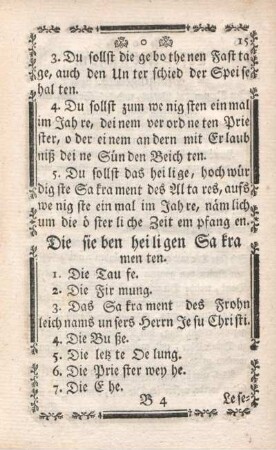 15
3. Du sollst die ge bo the nen Fast ta
ge, auch den Un ter schied der Spei se
hal ten.
4. Du sollst zum we nig sten ein mal
im Jah re, dei nem ver ord ne ten Prie
ster, o der ei nem an dern mit Er laub
niß dei ne Sün den Beich ten.
5. Du sollst das hei li ge, hoch wür
dig ste Sa kra ment des Al ta res, aufs
we nig ste ein mal im Jah re, näm lich
um die ö ster li che Zeit em pfang en.
Die sie ben hei li gen Sa kra
men ten.
1. Die Tau fe.
2. Die Fir mung.
3. Das Sa kra ment des Frohn
leich nams un sers Herrn Je su Chri sti.
4. Die Bu ße.
5. Die letz te Oe lung.
6. Die Prie ster wey he.
7. Die E he.
B 4 Le se-